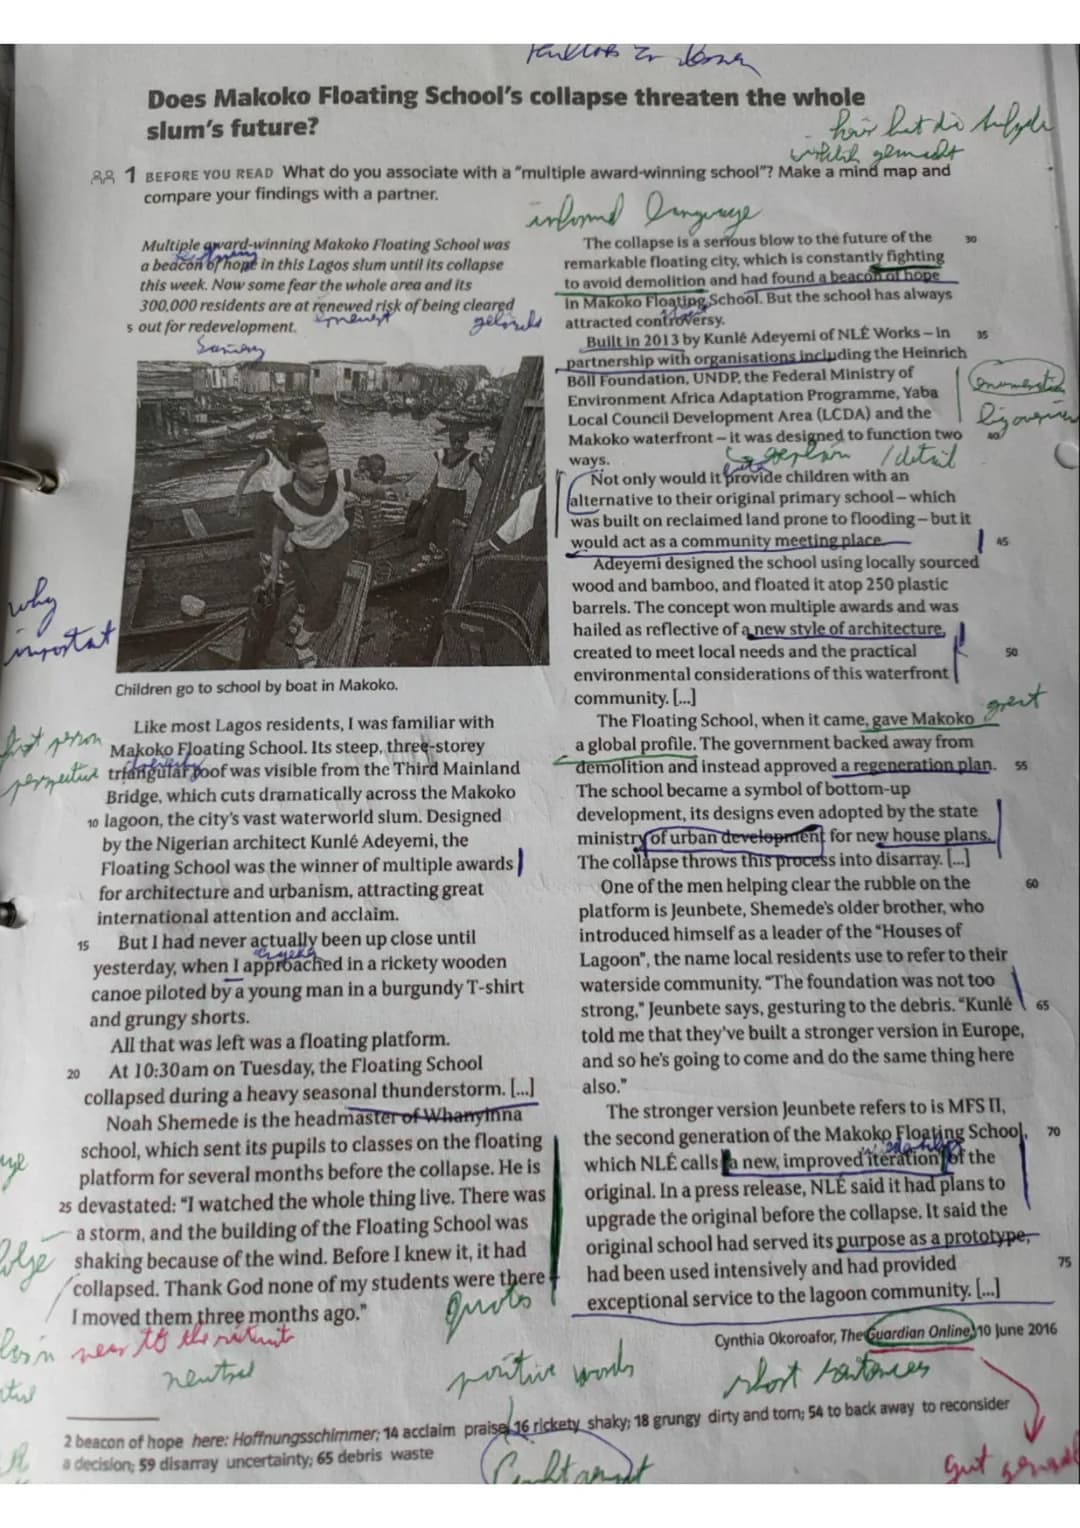 Does Makoko Floating School's collapse threaten the whole
slum's future?
1 BEFORE YOU READ What do you associate with a "multiple award-winning school"? Make a mind map and
compare your findings with a partner.
language
Multiple award-winning Makoko Floating School was
a beacon of hope in this Lagos slum until its collapse
this week. Now some fear the whole area and its
300,000 residents are at renewed risk of being cleared
5 out for redevelopment.
Children go to school by boat in Makoko.
why
important
first person
perspective
Like most Lagos residents, I was familiar with
Makoko Floating School. Its steep, three-storey
triangular roof was visible from the Third Mainland
Bridge, which cuts dramatically across the Makoko
10 lagoon, the city's vast waterworld slum. Designed
by the Nigerian architect Kunlé Adeyemi, the
Floating School was the winner of multiple awards
for architecture and urbanism, attracting great
international attention and acclaim.
15 But I had never actually been up close until
yesterday, when I approached in a rickety wooden
canoe piloted by a young man in a burgundy T-shirt
and grungy shorts.
All that was left was a floating platform.
20 At 10:30am on Tuesday, the Floating School
collapsed during a heavy seasonal thunderstorm. [...]
Noah Shemede is the headmaster of Whanyinna
school, which sent its pupils to classes on the floating
platform for several months before the collapse. He is
25 devastated: "I watched the whole thing live. There was
a storm, and the building of the Floating School was
shaking because of the wind. Before I knew it, it had
collapsed. Thank God none of my students were there –
I moved them three months ago."
quotes
neutral
The collapse is a serious blow to the future of the 30
remarkable floating city, which is constantly fighting
to avoid demolition and had found a beacon of hope
in Makoko Floating School. But the school has always
attracted controversy.
Built in 2013 by Kunlé Adeyemi of NLÉ Works – in 35
partnership with organisations including the Heinrich
Böll Foundation, UNDP, the Federal Ministry of
Environment Africa Adaptation Programme, Yaba
Local Council Development Area (LCDA) and the
Makoko waterfront – it was designed to function two 40
ways.
enumeration
explain / detail
Not only would it provide children with an
alternative to their original primary school – which
was built on reclaimed land prone to flooding – but it
would act as a community meeting place. 45
Adeyemi designed the school using locally sourced
wood and bamboo, and floated it atop 250 plastic
barrels. The concept won multiple awards and was
hailed as reflective of a new style of architecture,
created to meet local needs and the practical 50
environmental considerations of this waterfront
community. [...]
great
The Floating School, when it came, gave Makoko
a global profile. The government backed away from
demolition and instead approved a regeneration plan. 55
The school became a symbol of bottom-up
development, its designs even adopted by the state
ministry of urban development for new house plans.
The collapse throws this process into disarray. [...]
One of the men helping clear the rubble on the 60
platform is Jeunbete, Shemede's older brother, who
introduced himself as a leader of the "Houses of
Lagoon", the name local residents use to refer to their
waterside community. "The foundation was not too
strong," Jeunbete says, gesturing to the debris. "Kunlé 65
told me that they've built a stronger version in Europe,
and so he's going to come and do the same thing here
also."
The stronger version Jeunbete refers to is MFS II,
the second generation of the Makoko Floating School, 70
which NLÉ calls a new, improved iteration of the
original. In a press release, NLÉ said it had plans to
upgrade the original before the collapse. It said the
original school had served its purpose as a prototype,
had been used intensively and had provided 75
exceptional service to the lagoon community. [...]
Cynthia Okoroafor, The Guardian Online, 10 June 2016
positive words
short sentences
2 beacon of hope here: Hoffnungsschimmer; 14 acclaim praise; 16 rickety shaky; 18 grungy dirty and torn; 54 to back away to reconsider
a decision; 59 disarray uncertainty; 65 debris waste